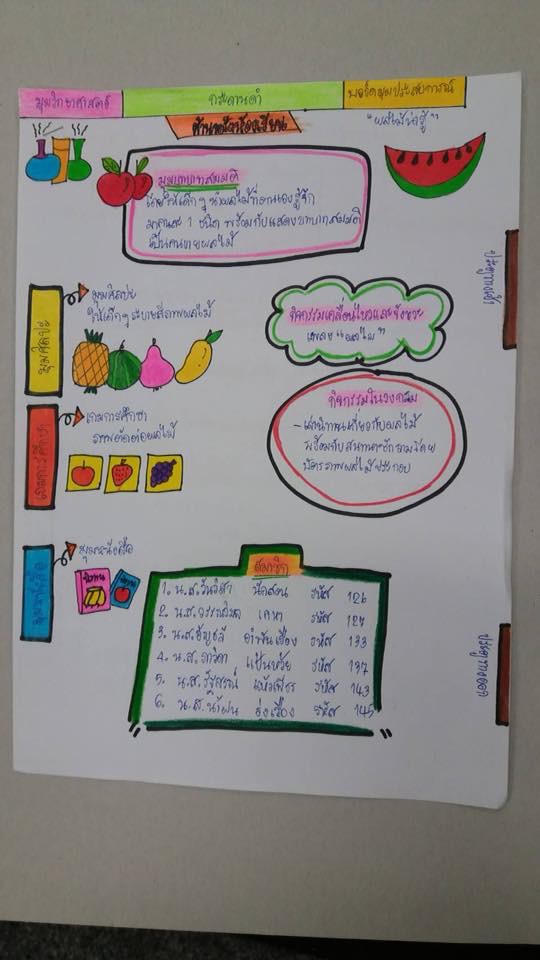 มุมวิทยาศาสตร์
กระดานดำ
บอร์ดมุมประสบการณ์
ด้านหน้าห้องเรียน
"ผลไม้น่ารู้"
มุมบทบาทสมมติ
โดยให้เด็กๆ นำผลไม้ที่ตนเองรู้จัก
มาคนละ 1 ชนิด พร้อมกับแสดงบทบาทสมมติ
เป็นคนขายผลไม้
ประตูทางเข้า
มุมศิลปะ
มุมศิลปะ
ให้เด็กๆ ระบายสีภาพผลไม้
กิจกรรมเคลื่อนไหวและจังหวะ
เพลง "ผลไม้"
เกมการศึกษา
เกมการศึกษา
ภาพตัดต่อผลไม้
กิจกรรมในวงกลม
- เล่านิทานเกี่ยวกับผลไม้
พร้อมกับสนทนาซักถามโดย
บัตรภาพผลไม้ประกอบ
มุมหนังสือ
มุมหนังสือ
นิทาน
สมาชิก
1. น.ส.วันวิสา นักสอน รหัส 126
2. น.ส. เคหา รหัส
3. น.ส. อำพันเรือง รหัส 133
4. น.ส. แป้นห้วย รหัส 137
5. น.ส. รหัส 143
6. น.ส.น้ำฝน รุ่งเรือง รหัส 145
ประตูทางออก